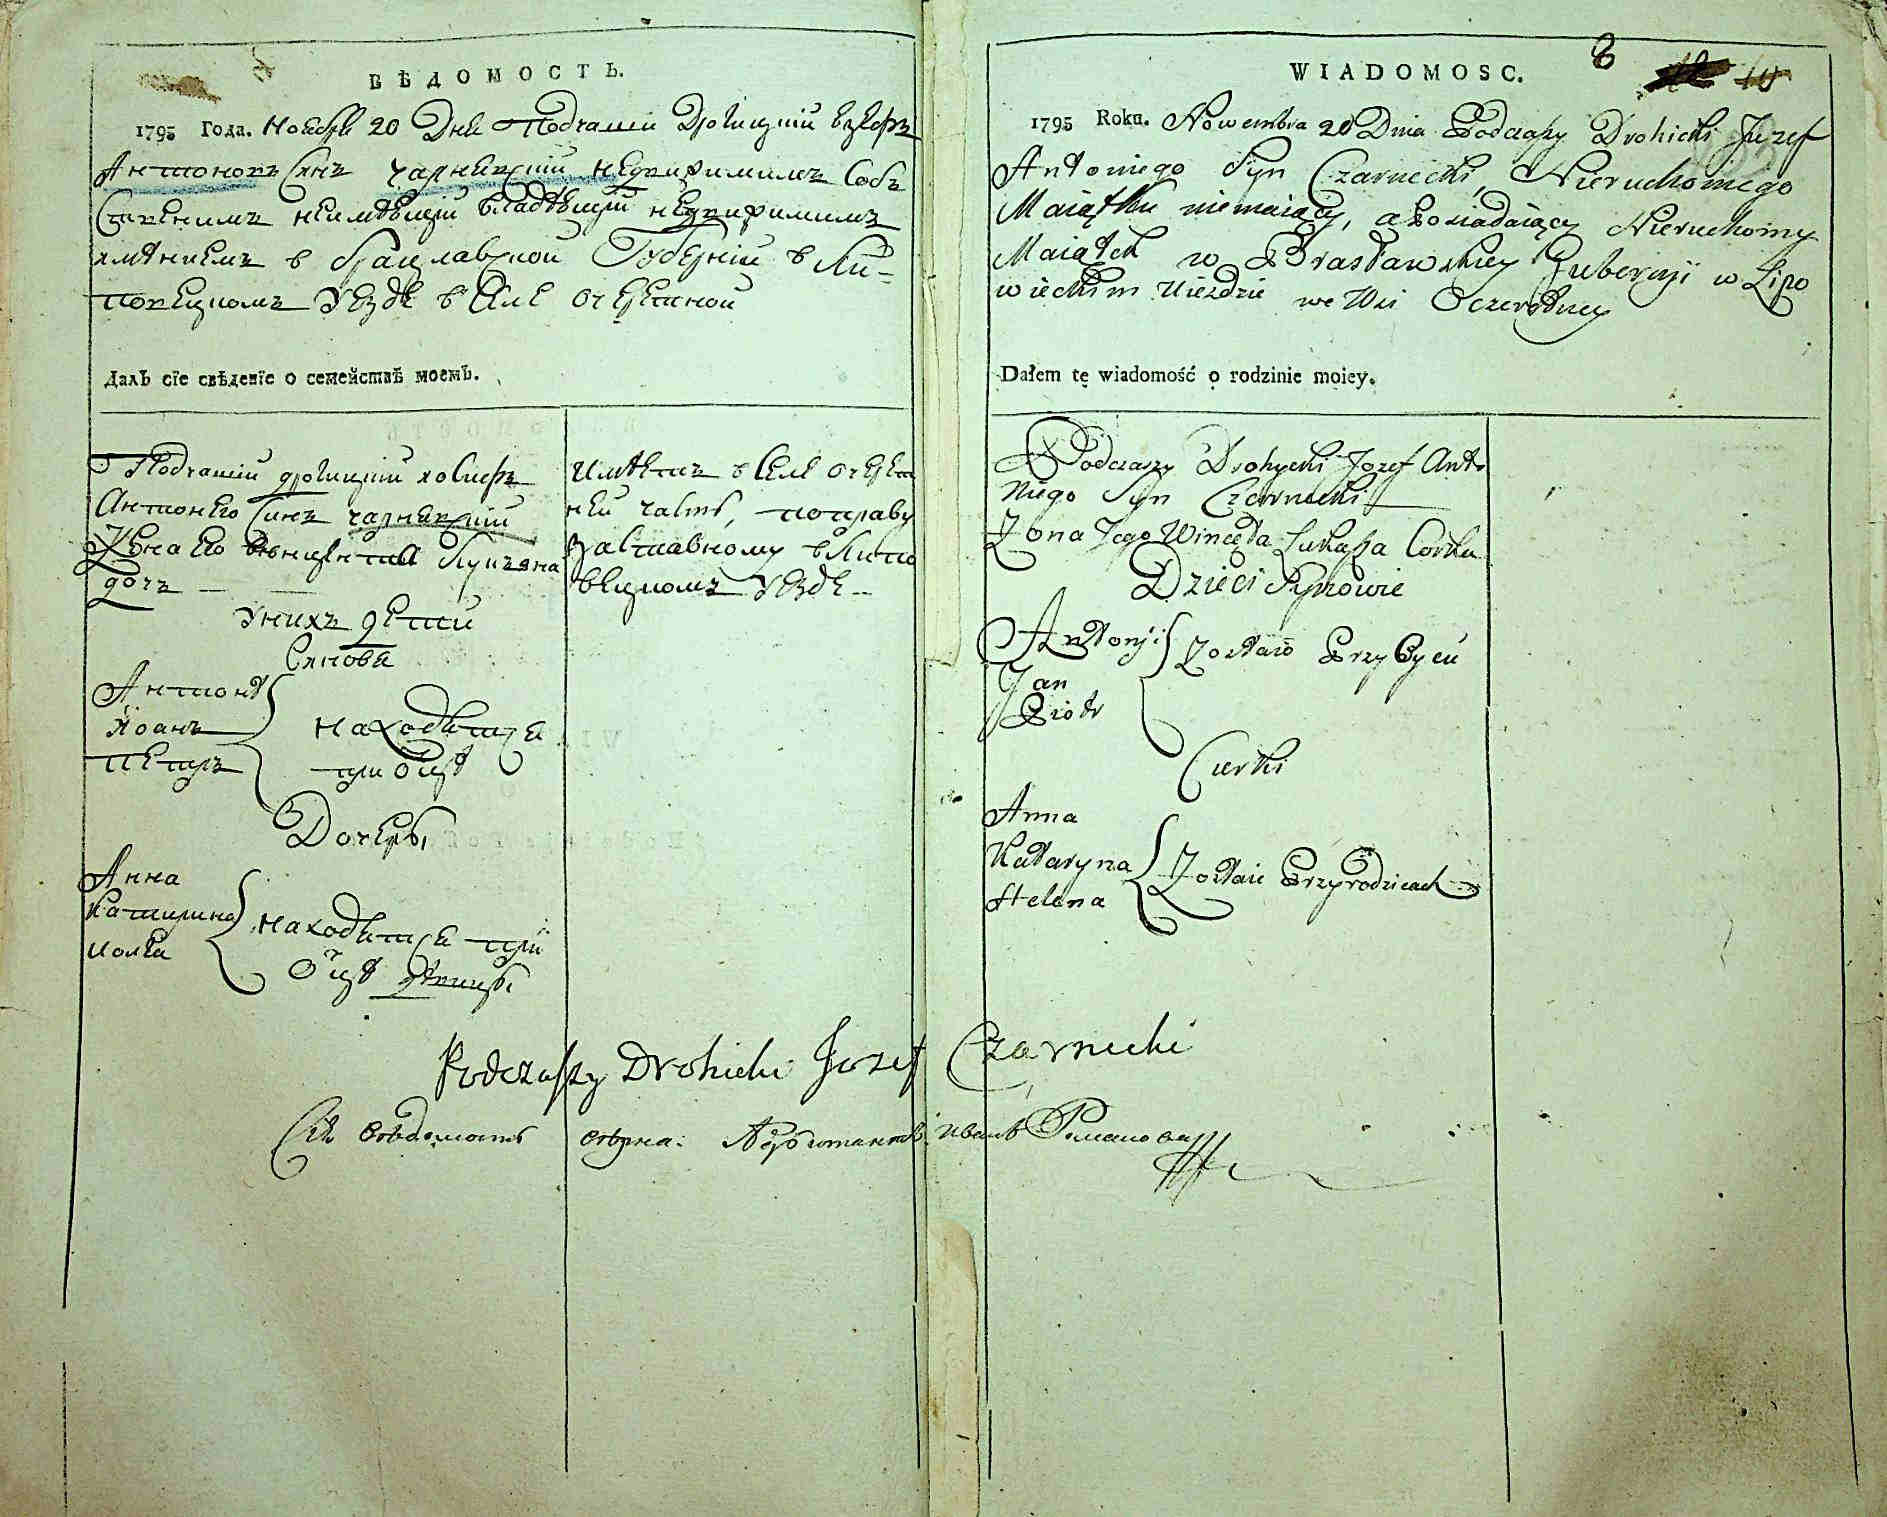 ВѢДОМОСТЬ.
1795 Года. Ноября 20 Дня Подчаши Дрогицкій
Антоновъ Сынъ Чарнецкій недвижимимъ Соб
ственимъ неимѣющій владѣющій недвижимимъ
имѣниемъ в Брацлавской Губерніи в Ли-
повецкомъ Уезде в Селе Очеретной
Далъ сїе свѣденїе о семействѣ моемъ.
Подчаший дрогицкий
Антонего Синъ чарнецкій
Жена его Луцъяна
дочъ
Унихъ дети
Синовя
Антонъ
Иоанъ
Петръ
находятся
при
Дочеры
Анна
Катирина
находятся при
имѣетъ в Селе очерет
ней часть, поправу
заставному в Липо
вецкомъ Уезде
8
10
WIADOMOSC.
1795 Roku. Nowembra 20 Dnia Podczaszy Drohicki Juzef
Antoniego Syn Czarnecki, Nieruchomego
Maiątku niemaiący, a Posiadaiący Nieruchomy
Maiątek w Brasławskiey Gubernyi w Lipo
wieckim Uiezdzie we Wsi Oczeretney
Dałem tę wiadomość o rodzinie moiey.
Podczaszy Drohycki Jozef Anto
niego Syn Czarnecki
Zona Jego Wincęta Łukasza Corka
Dzieci Synowie
Antonji
Jan
Piotr
Zostaio Przy Oycu
Curki
Anna
Kataryna
Helena
Zostaie Przy rodzicach
Podczaszy Drohicki Jozef Czarnecki
Сія вѣдомость вѣрна: Иванъ